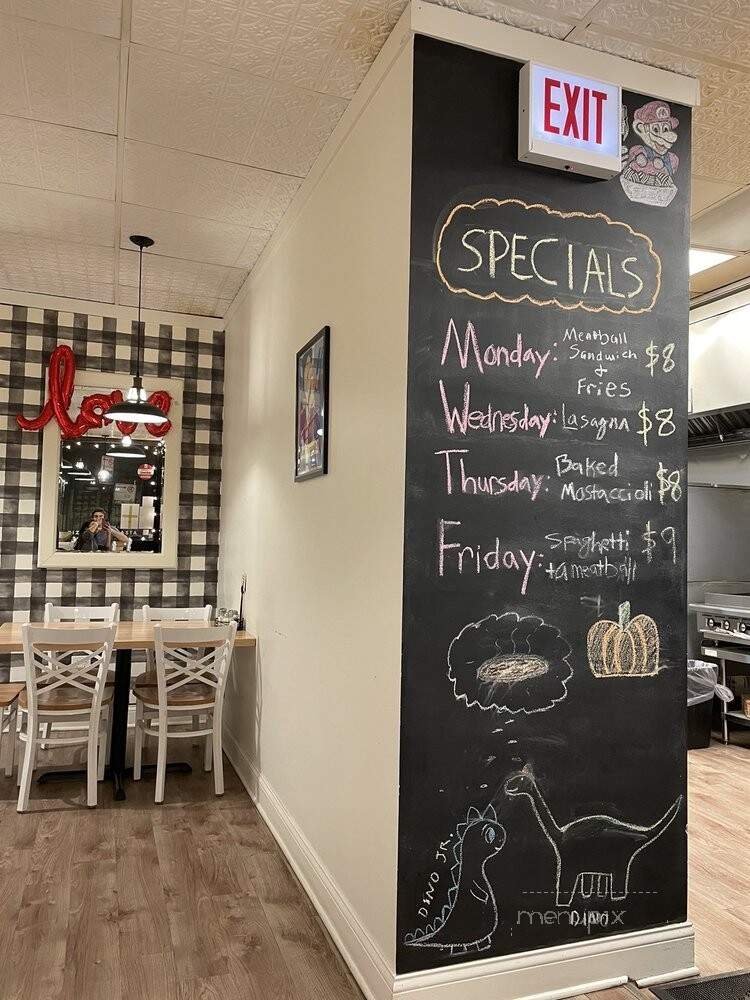 EXIT
SPECIALS
Monday: Meatball
Sandwich
+
Fries $8
Wednesday: Lasagna $8
Thursday: Baked
Mostaccioli $8
Friday: Spaghetti
+a meatball $9
love
DINO JR.
DINO
menupix